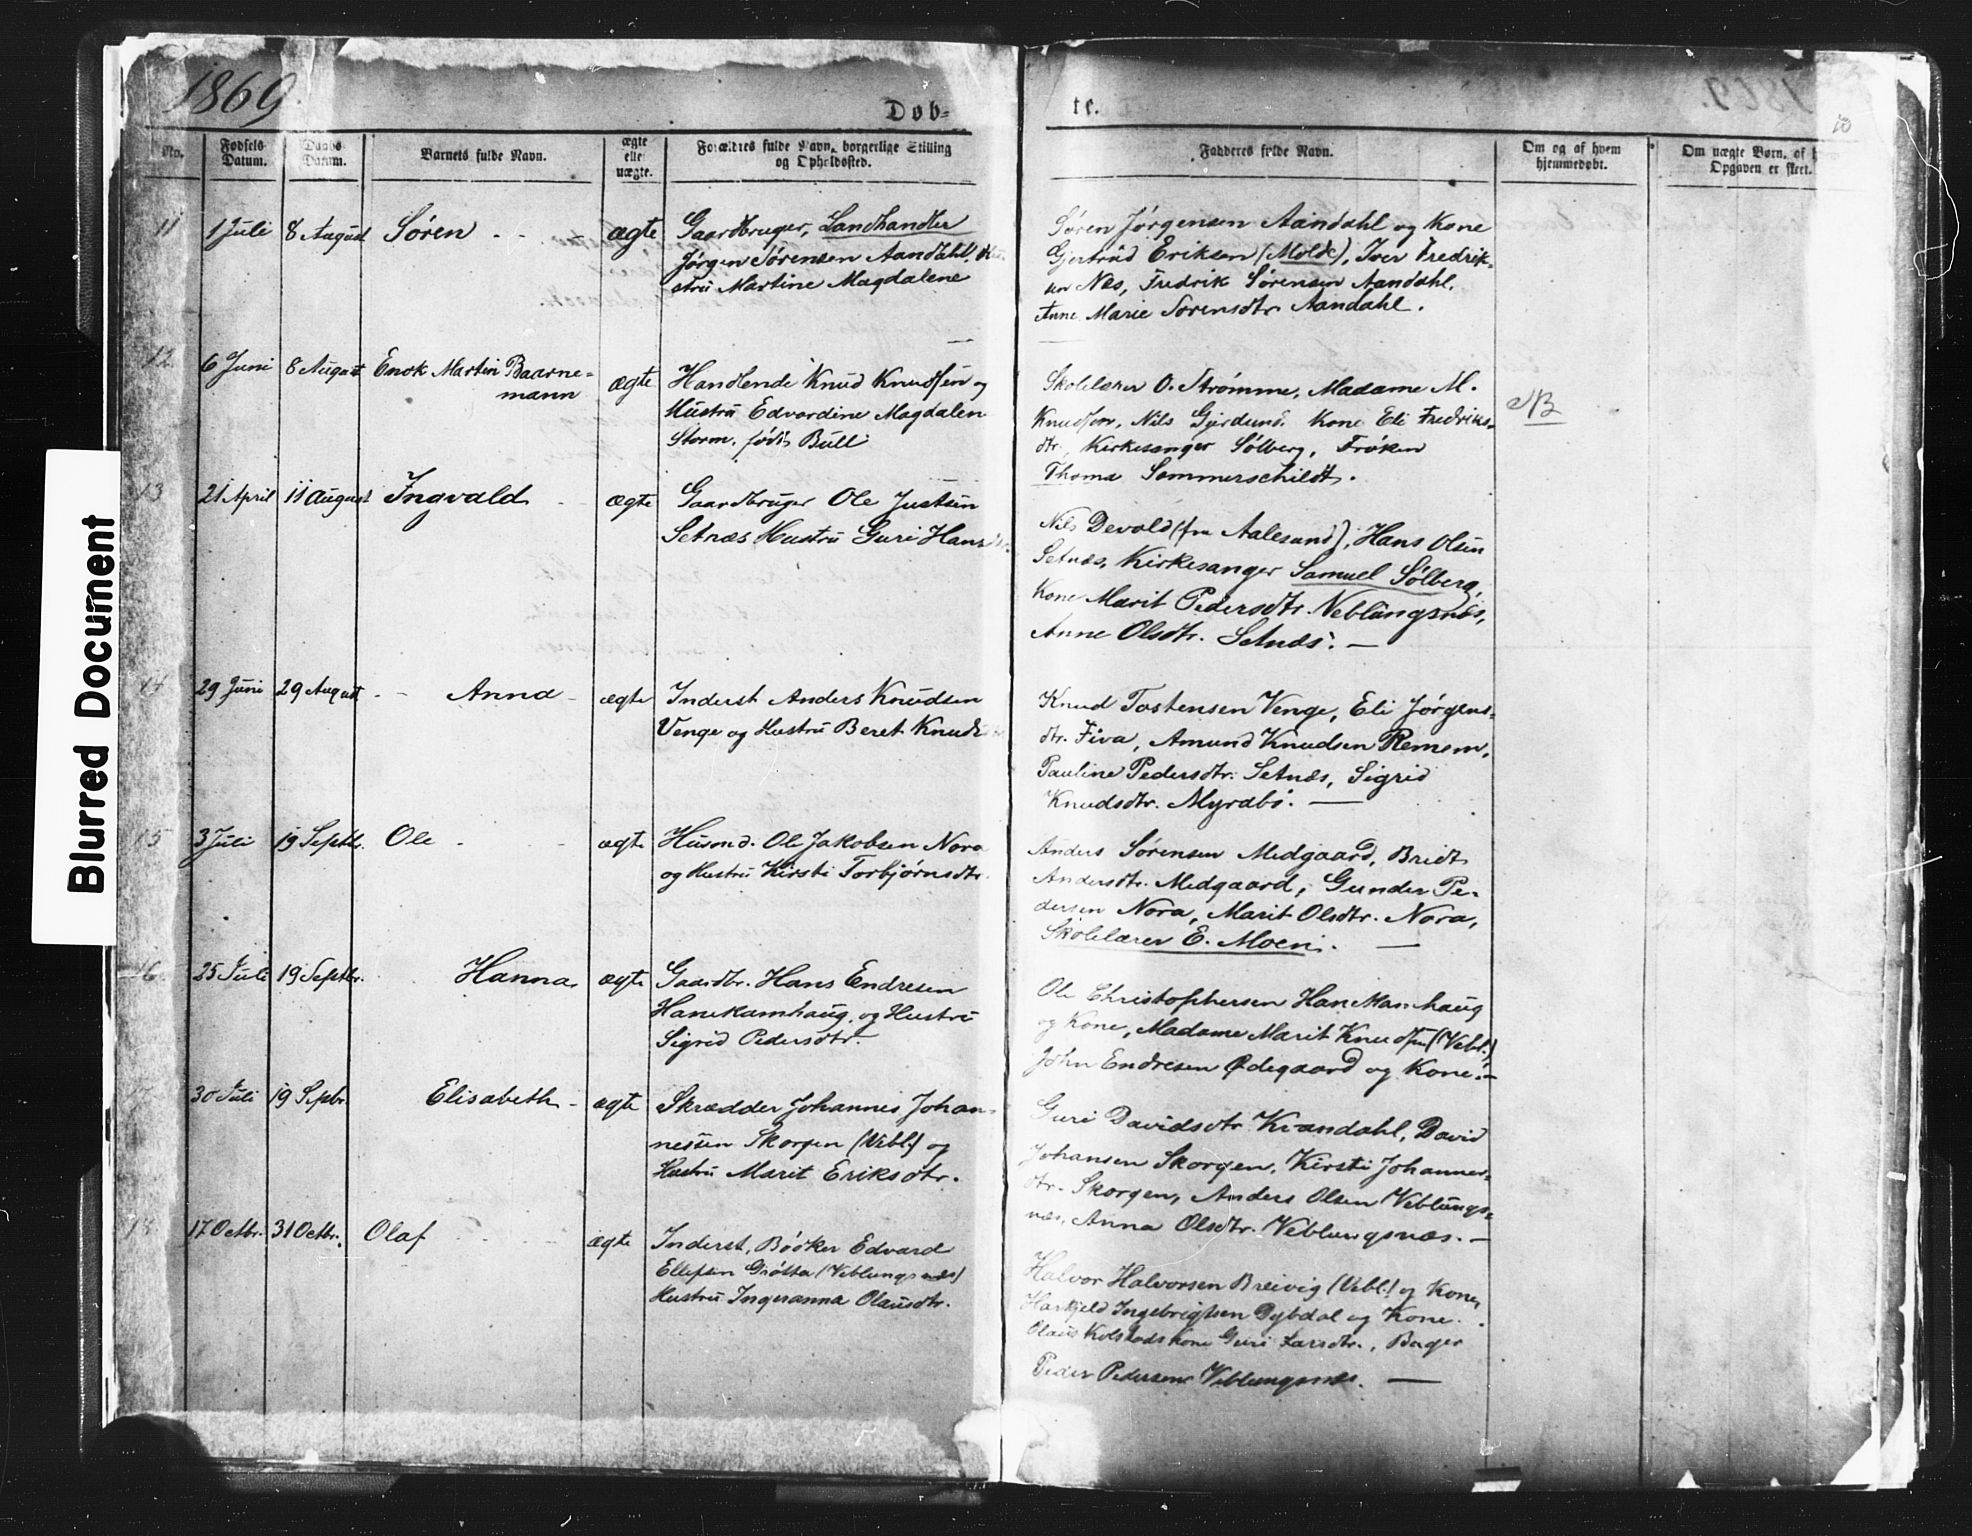 1869
Døb=
te.
1869.
10
Blurred Document
No.
Fødsels
Datum.
Daabs
Datum.
Barnets fulde Navn.
ægte
elle
uægte.
Forældres fulde Navn, borgerlige Stilling
og Opholdssted.
Fadderes fulde Navn.
Om og af hvem
hjemmedøbt.
Om uægte Børn, af h
Opgaven er skeet.
11 1 Juli 8 August Søren ægte Gaardbruger, Landhandler
Jørgen Sørensen Aandahl, Hu
stru Martine Magdalene
Søren Jørgensen Aandahl og Kone
Gjertrud Eriksen (Molde), Iver Fredrik-
sen Næs, Fredrik Sørensen Aandahl.
Anne Marie Sørensdtr Aandahl.
12 6 Juni 8 August Enok Martin Baarne=
mann
ægte Handlende Knud Knudsen og
Hustru Edvardine Magdalen
Storm, født Bull
Skolelærer O. Strømme, Madame M.
Knudsen, Nils Gjerdund. Kone Eli Fredriks-
dtr, Kirkesanger Sølberg, Frøken
Thoma Sommerschildt.
NB
13 21 April 11 August Ingvald ægte Gaardbruger Ole Justsen
Setnæs Hustru Guri Hans
Nils Devold (fra Aalesund), Hans Olsen
Setnæs, Kirkesanger Samuel Sølberg,
Kone Marit Pedersdtr. Veblungsnæs,
Anne Olsdtr. Setnæs. —
14 29 Juni 29 August Anna ægte Inderst Anders Knudsen
Venge og Hustru Beret Knuds
Knud Tostensen Venge, Eli Jørgens=
dtr. Fiva, Amund Knudsen Remem,
Pauline Pedersdtr. Setnæs, Sigrid
Knudsdtr. Myrabø. —
15 3 Juli 19 Septbr. Ole ægte Husmd. Ole Jakobsen Nora
og Hustru Kirsti Torbjørnsdtr.
Anders Sørensen Midgaard, Bridt
Andersdtr. Midgaard, Gunder Pe-
dersen Nora, Marit Olsdtr. Nora,
Skolelærer E. Moen. —
16 25 Juli 19 Septbr. Hanna ægte Gaardbr. Hans Endresen
Hanekamhaug og Hustru
Sigrid Pedersdtr.
Ole Christophersen Hanekamhaug
og Kone, Madame Marit Knudsen (Vebl.)
John Endresen Ødegaard og Kone. —
17 30 Juli 19 Sepbr. Elisabeth ægte Skrædder Johannes Johan-
nessen Skorgen (Vebl.) og
Hustru Marit Eriksdtr.
Guri Davidsdtr Kvandahl, David
Johansen Skorgen, Kirsti Johannes-
dtr. Skorgen, Anders Olsen Veblungs=
næs, Anna Olsdtr. Veblungsnæs. —
18 17 Octbr. 31 Octbr. Olaf ægte Inderst, Bødker Edvard
Ellefsen Grøtta (Veblungsnæs)
Hustru Ingeranna Olausdtr.
Halvor Halvorsen Breivig (Vebl.) og Kone,
Ingebrigtsen Dybdal og Kone.
Olaus Kolstads Kone Guri Larsdtr., Bager
Peder Pedersen Veblungsnæs. —